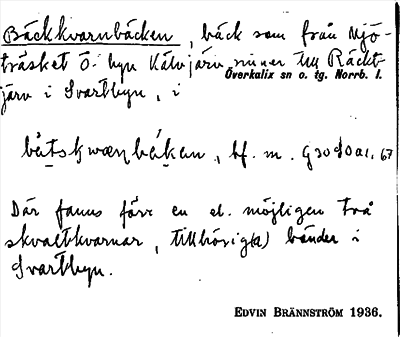 Bäckkvarnbäcken, bäck som från Mjö-
träsket Ö. byn Kälvjärv rinner till Räckt-
Överkalix sn o. tg. Norrb. l.
järv i Svartbyn, i
bf. m.
Där fanns förr en el. möjligen två
skvaltkvarnar, tillhörig(a) bönder i
Svartbyn.
EDVIN BRÄNNSTRÖM 1936.